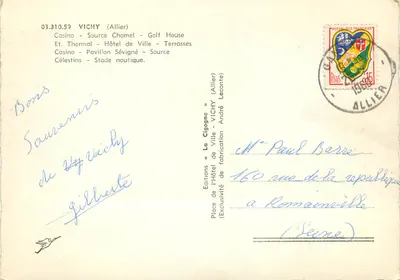 03.310.59 VICHY (Allier)
Casino - Source Chomel - Golf House
Et. Thermal - Hôtel de Ville - Terrasses
Casino - Pavillon Sévigné - Source
Célestins - Stade nautique.
Bons
Souvenirs
de Vichy
Gilberte
Editions « La Cigogne »
Place de l'Hôtel de Ville - VICHY (Allier)
(Exclusivité de fabrication André Leconte)
1960
ALLIER
Mr Paul Barre
160 rue de la république
a Romainville
(Seine)